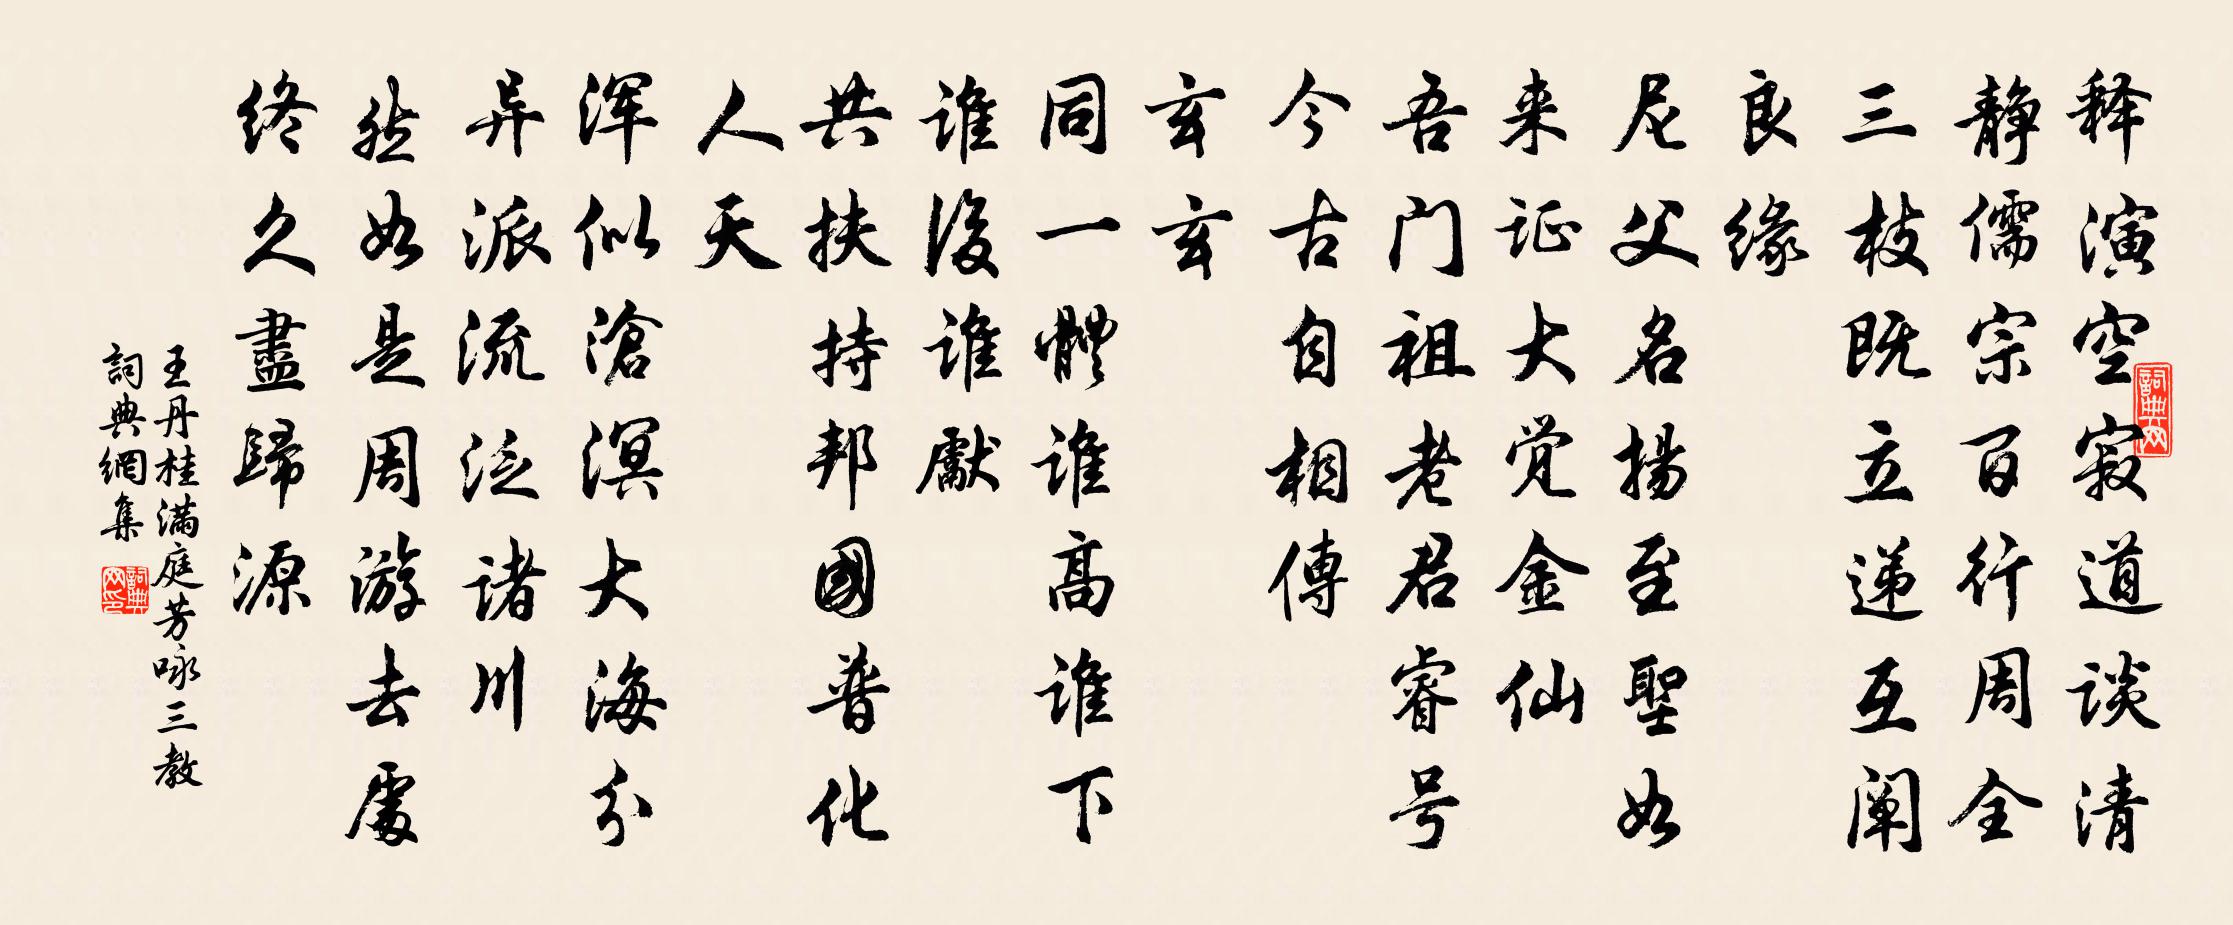 释演空寂道谈清
静儒宗百行周全
三枝既立递互阐
良缘
尼父名扬至聖如
来证大觉金仙
吾门祖老君睿号
今古自相傳
玄玄
同一體谁高谁下
谁後谁獻
共扶持邦國普化
人天
浑似滄溟大海分
异派流泛诸川
然如是周游去處
终久盡歸源
王丹桂满庭芳咏三教
詞典網集
詞典网
詞典网印